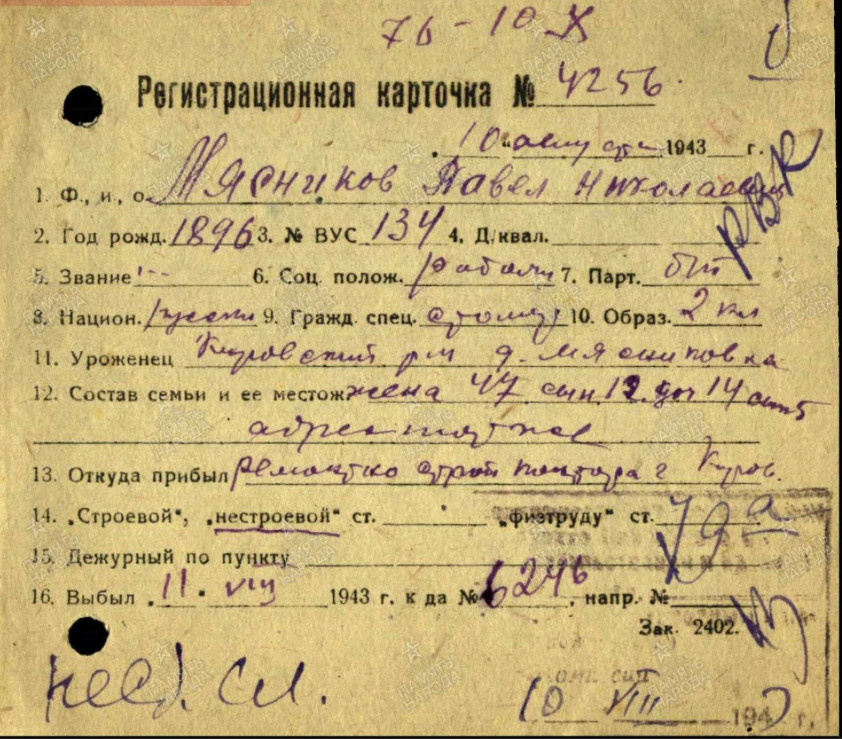 76 - 10 X
Регистрационная карточка № 4256.
"10" августа 1943 г.
1. Ф., и., о. Мясников Павел Николаевич
РВК
2. Год рожд. 1896 3. № ВУС 134 4. Д/квал.
5. Звание 6. Соц. полож. рабочий 7. Парт. бп
8. Национ. русский 9. Гражд. спец. столяр 10. Образ. 2 кл
11. Уроженец Кировский рн д. Мясниковка
12. Состав семьи и ее местож. жена 47 сын 12 доч 14
адрес
13. Откуда прибыл Ремонтно строй контора г Киров.
14. „Строевой“, „нестроевой“ ст. „физтруду“ ст.
15. Дежурный по пункту
16. Выбыл "11" VIII 1943 г. к да № 6246, напр. №
Зак. 2402.
10 VIII 1943 г.